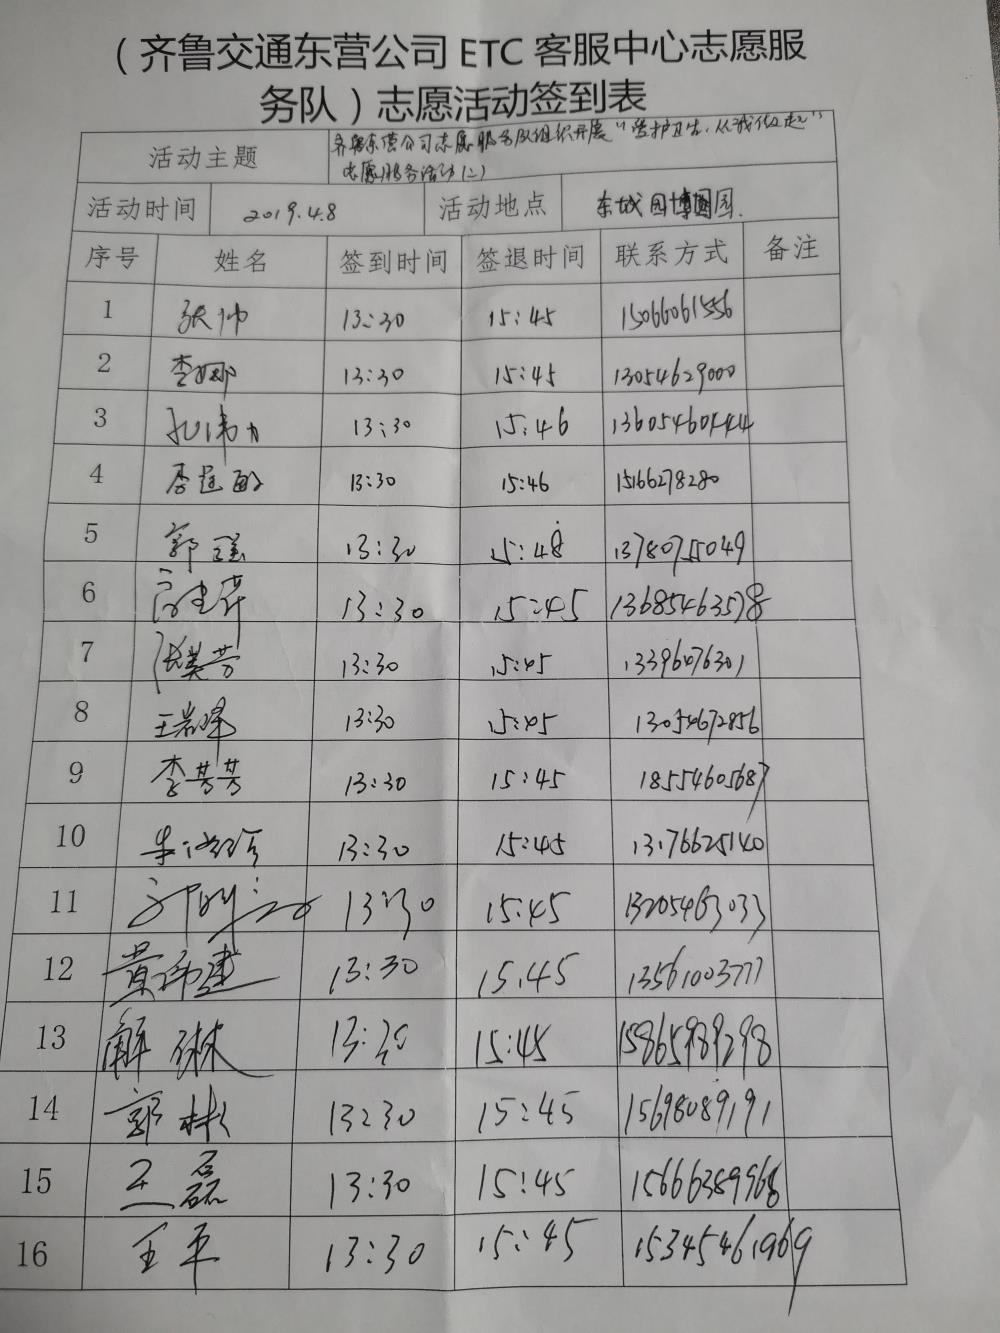 （齐鲁交通东营公司 ETC 客服中心志愿服
务队）志愿活动签到表
活动主题 齐鲁东营公司志愿服务队组织开展“爱护卫生，从我做起”
志愿服务活动(二)
活动时间 2019.4.8 活动地点 东城园博园
序号 姓名 签到时间 签退时间 联系方式 备注
1 张帅 13:30 15:45 15066061556
2 李娜 13:30 15:45 13054629000
3 13:30 15:46
4 13:30 15:46 15166278280
5 郭瑶 13:30 15:48 13780755049
6 13:30 15:45 13685463578
7 张美芳 13:30 15:45 13396076301
8 13:30 15:45 13054672856
9 李芳芳 13:30 15:45 18554605687
10 13:30 15:45 13176625140
11 13:30 15:45 13205463033
12 13:30 15.45 13561003777
13 解琳 13:30 15:45 15865989298
14 郭彬 13:30 15:45 15698089191
15 王磊 13:30 15:45 15666389968
16 王平 13:30 15:45 15345461969